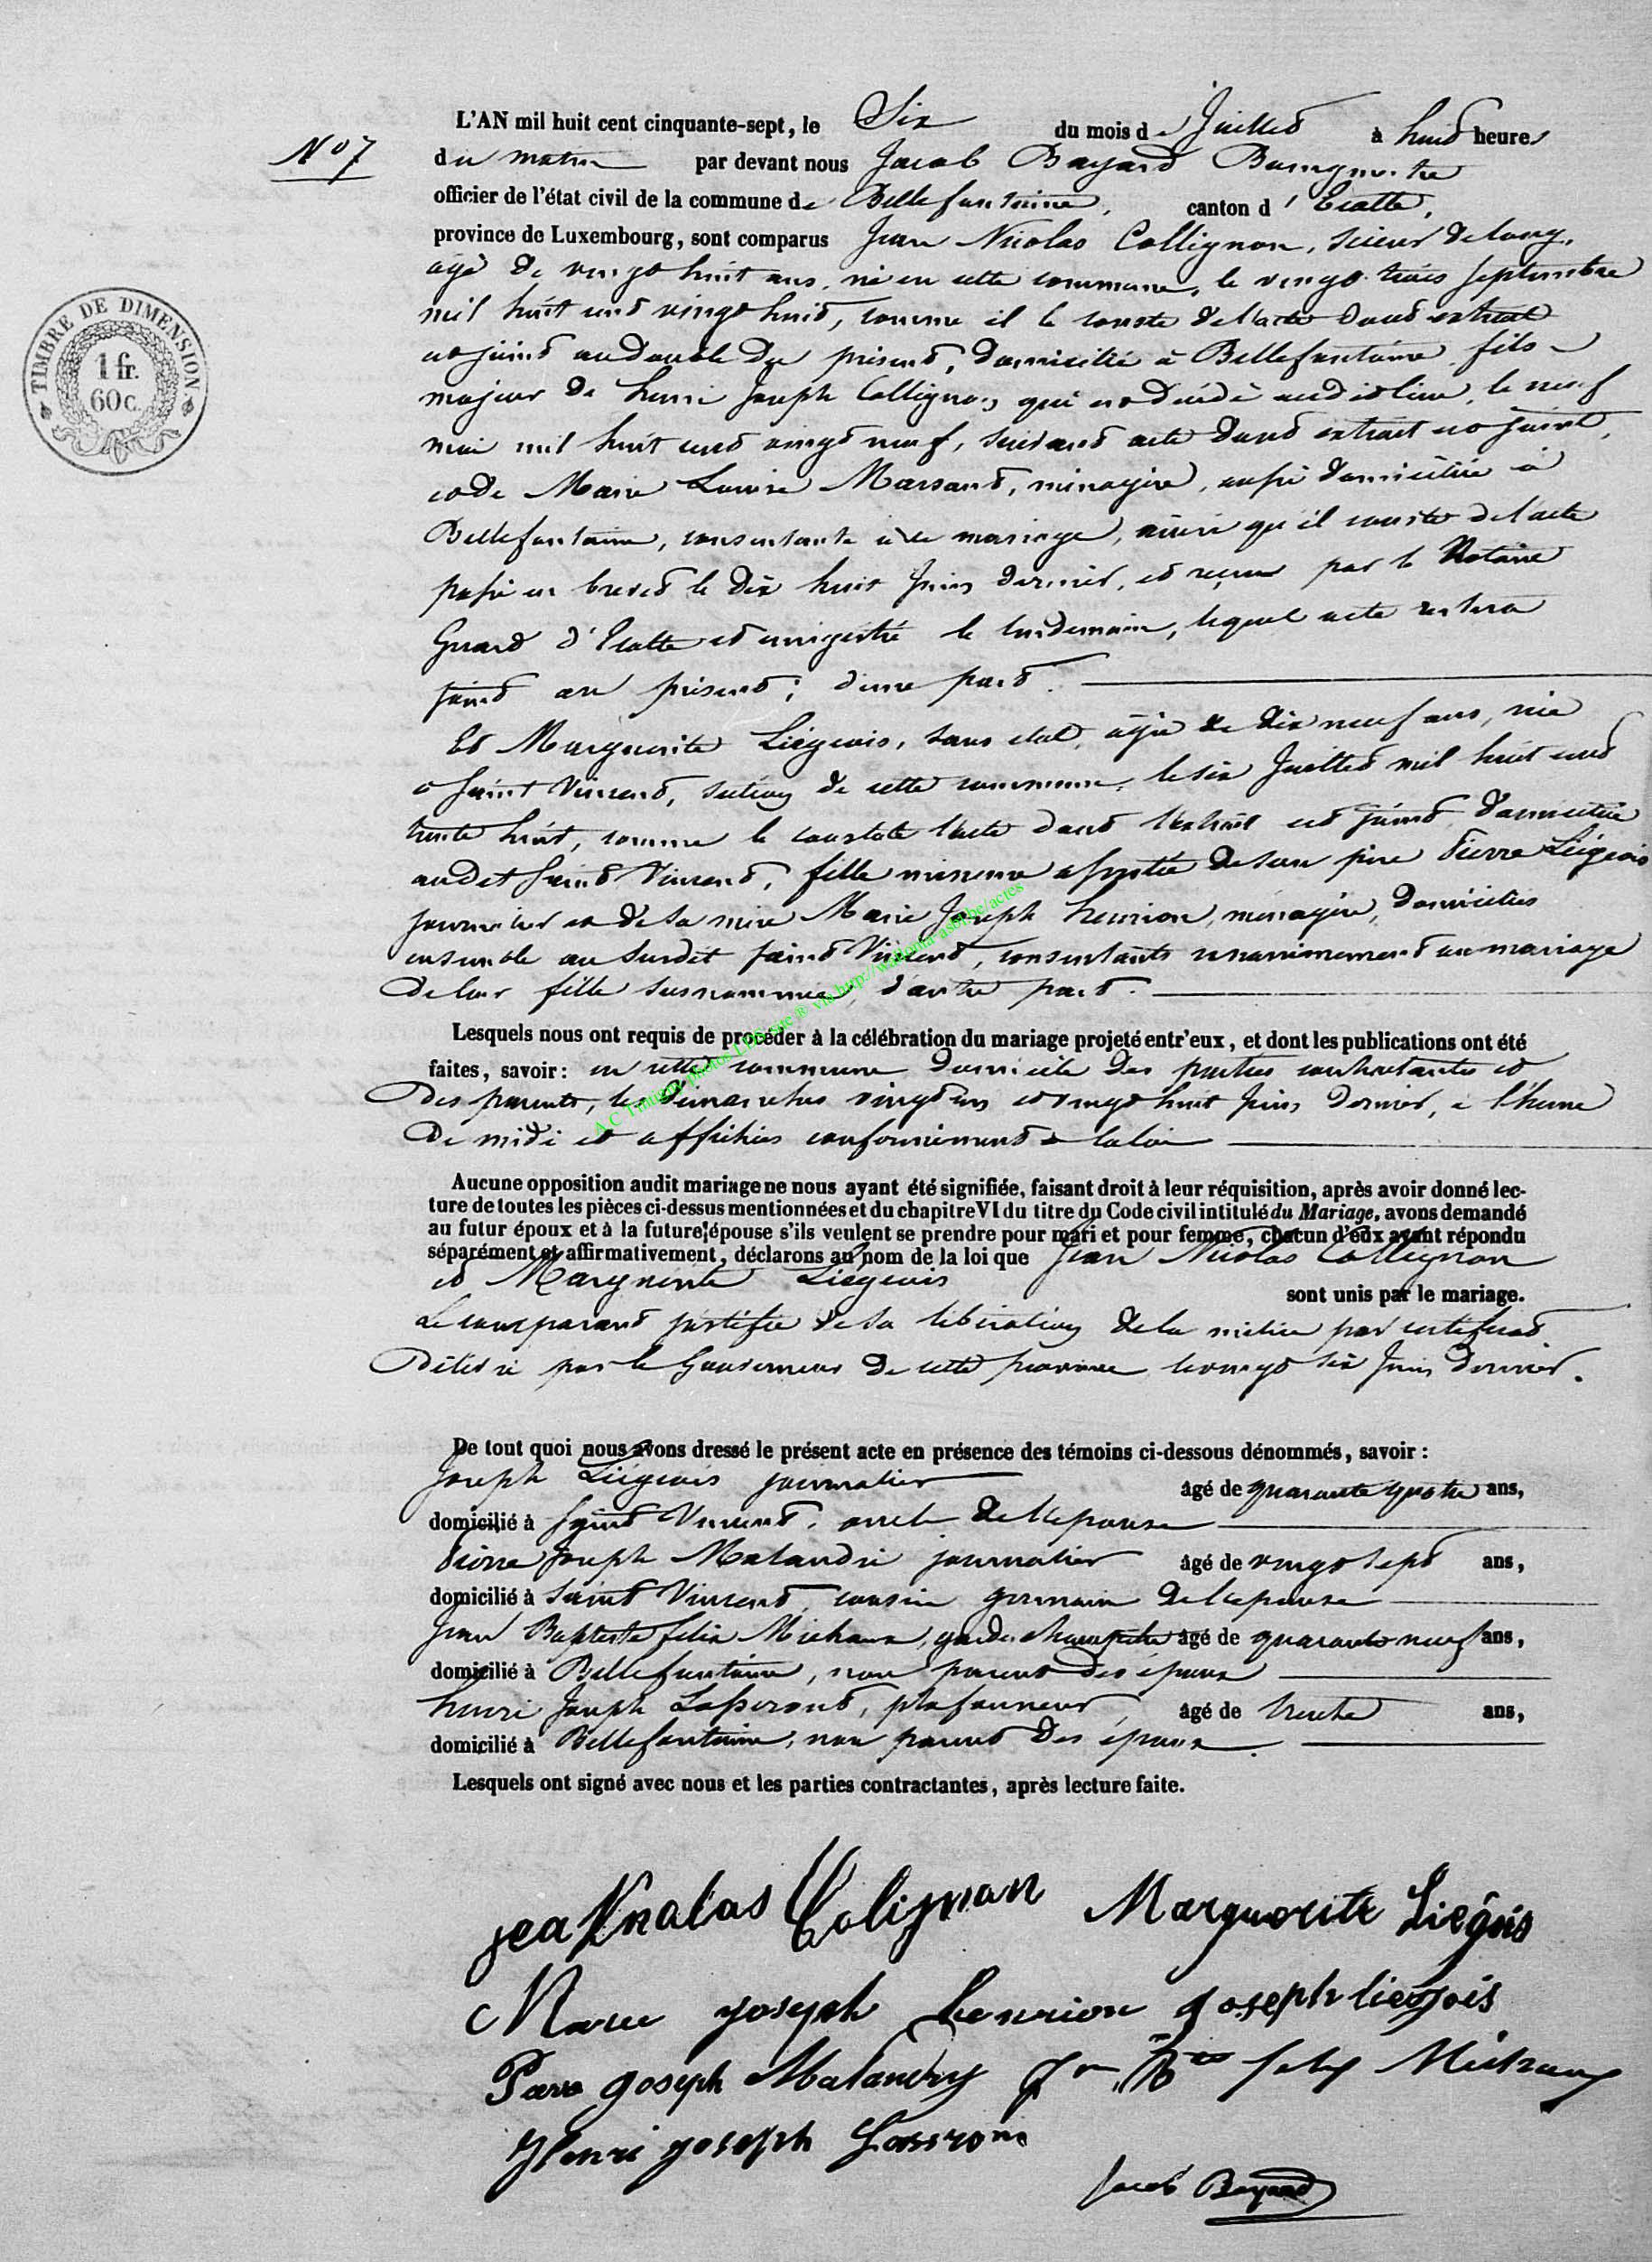 L'AN mil huit cent cinquante-sept, le Six du mois de Juillet à huit heures
No 7
du matin par devant nous Jacob Bayard Bourgmestre
officier de l'état civil de la commune de Bellefontaine, canton d'Etalle,
province de Luxembourg, sont comparus Jean Nicolas Collignon, scieur de long,
agé de vingt huit ans, né en cette commune, le vingt trois septembre
mil huit cent vingt huit, comme il le conste de l'acte dont extrait
est joint au double du présent, domicilié à Bellefontaine, fils
majeur de henri Joseph Collignon, qui est décédé audit lieu, le neuf
mai mil huit cent vingt neuf, suivant acte dont extrait est joint,
et de Marie Louise Marsant, ménagère, aussi domiciliée à
Bellefontaine, consentante à ce mariage, ainsi qu'il conste de l'acte
passé en brevet le dix huit Juin dernier, et reçu par le Notaire
d'Etalle et enregistré le lendemain, lequel acte restera
joint au présent; d'une part.
Et Marguerite Liégeois, sans état, agée de dix neuf ans, née
a Saint Vincent, section de cette commune, le six Juillet mil huit cent
trente huit, comme le constate l'acte dont l'extrait est joint, domiciliée
audit Saint Vincent, fille mineure assistée de son père Pierre Liégeois
journalier et de sa mère Marie Joseph henrion, ménagère, domiciliés
ensemble au susdit Saint Vincent, consentants unanimement au mariage
de leur fille susnommée, d'autre part.
Lesquels nous ont requis de procéder à la célébration du mariage projeté entr'eux, et dont les publications ont été
faites, savoir: en cette commune domicile des parties contractantes et
des parents, les dimanches vingt un et vingt huit Juin dernier, a l'heure
de midi et affichées conformément a la loi
Aucune opposition audit mariage ne nous ayant été signifiée, faisant droit à leur réquisition, après avoir donné lec-
ture de toutes les pièces ci-dessus mentionnées et du chapitre VI du titre du Code civil intitulé du Mariage, avons demandé
au futur époux et à la future épouse s'ils veulent se prendre pour mari et pour femme, chacun d'eux ayant répondu
séparément et affirmativement, déclarons au nom de la loi que Jean Nicolas Collignon
et Marguerite Liégeois sont unis par le mariage.
Le comparant justifie de sa libération de la milice par certificat
délivré par le Gouverneur de cette province le vingt six Juin dernier.
De tout quoi nous avons dressé le présent acte en présence des témoins ci-dessous dénommés, savoir:
Joseph Liégeois journalier âgé de quarante quatre ans,
domicilié à Saint Vincent, oncle de l'épouse
Pierre Joseph Malandri journalier âgé de vingt sept ans,
domicilié à Saint Vincent, cousin germain de l'épouse
Jean Baptiste felix Michaux, garde champêtre âgé de quarante neuf ans,
domicilié à Bellefontaine, non parent des époux
henri Joseph Lasseront, plafonneur, âgé de trente ans,
domicilié à Bellefontaine, non parent des époux.
Lesquels ont signé avec nous et les parties contractantes, après lecture faite.
Marguerite
Marie joseph henrion joseph liegois
joseph Malandry Jn Bte felix Michaux
Henri joseph
Jacob Bayard
TIMBRE DE DIMENSION
1 fr.
60 c.